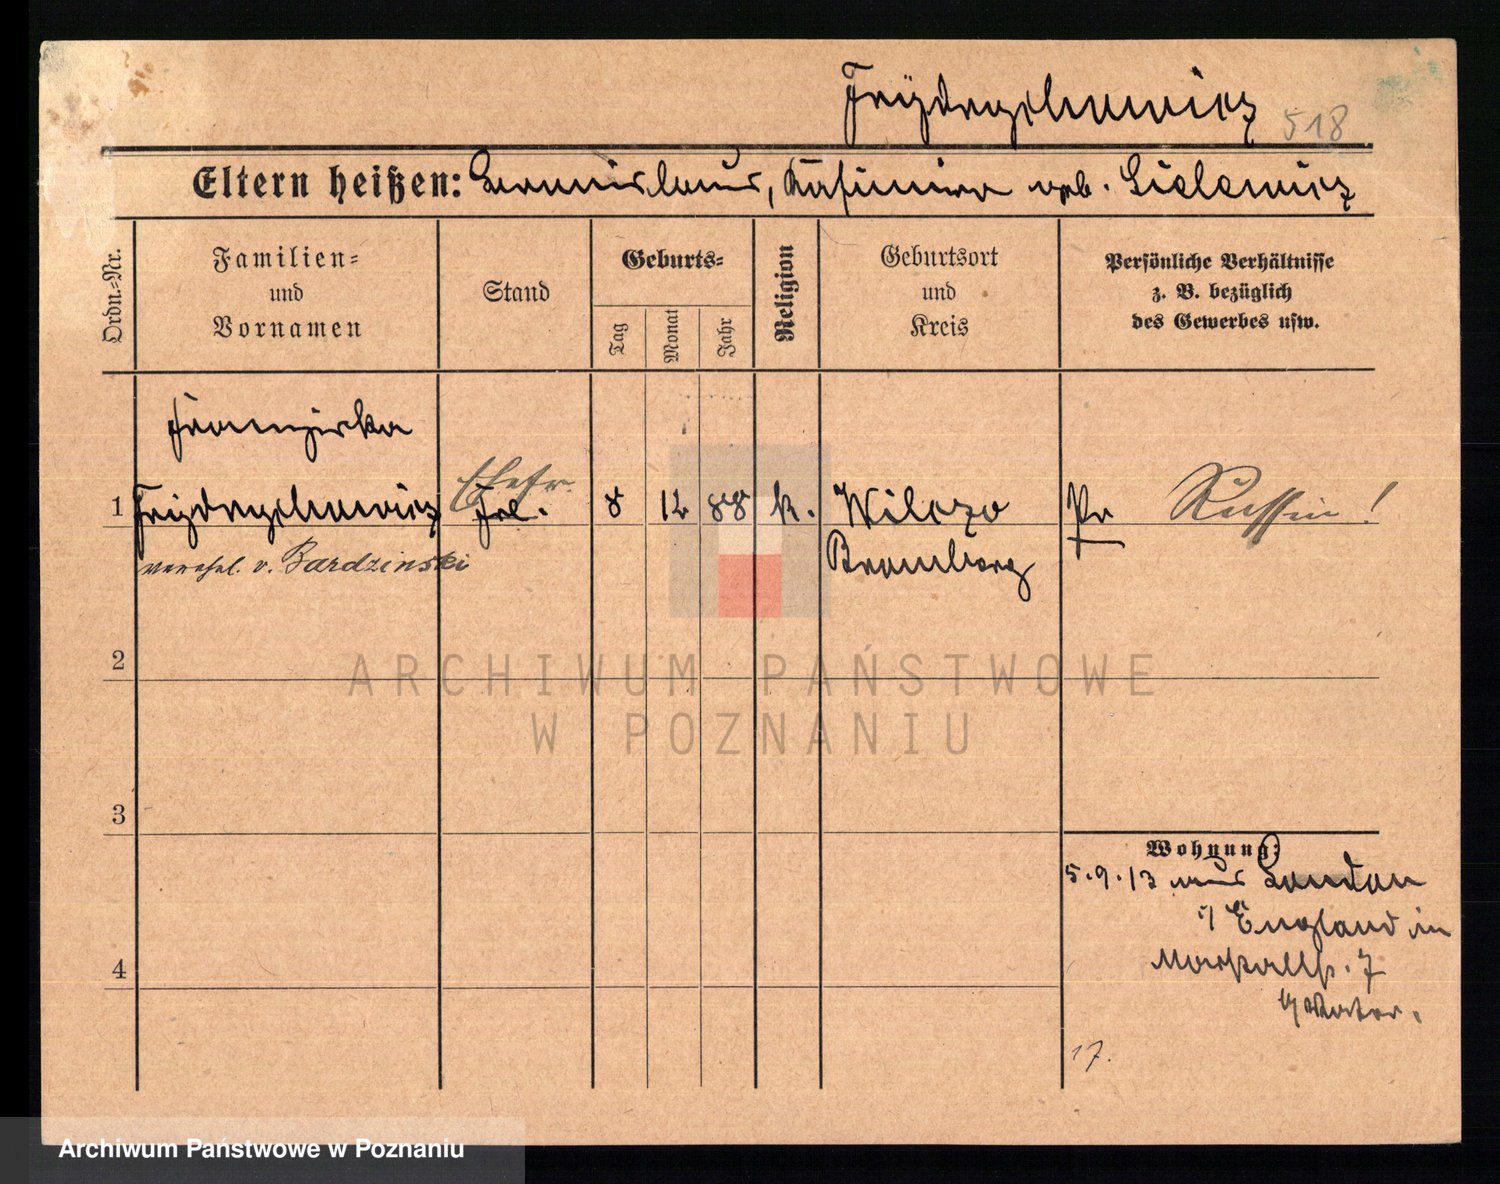 Frydrychowicz 518
Eltern heißen: Stanislaus, Kasimira geb. Sielewicz
Ordn.-Nr.
Familien-
und
Vornamen
Stand
Geburts-
Tag
Monat
Jahr
Religion
Geburtsort
und
Kreis
Persönliche Verhältnisse
z. B. bezüglich
des Gewerbes usw.
Franziska
Ehefr.
1 Frydrychowicz Frl. 8 12 88 k. Wilczo Pr Russin!
verehel. v. Bardzinski Bromberg
2
ARCHIWUM PAŃSTWOWE
W POZNANIU
3
Wohnung:
5.9.13 aus London
i/ England in
4
17.
Archiwum Państwowe w Poznaniu